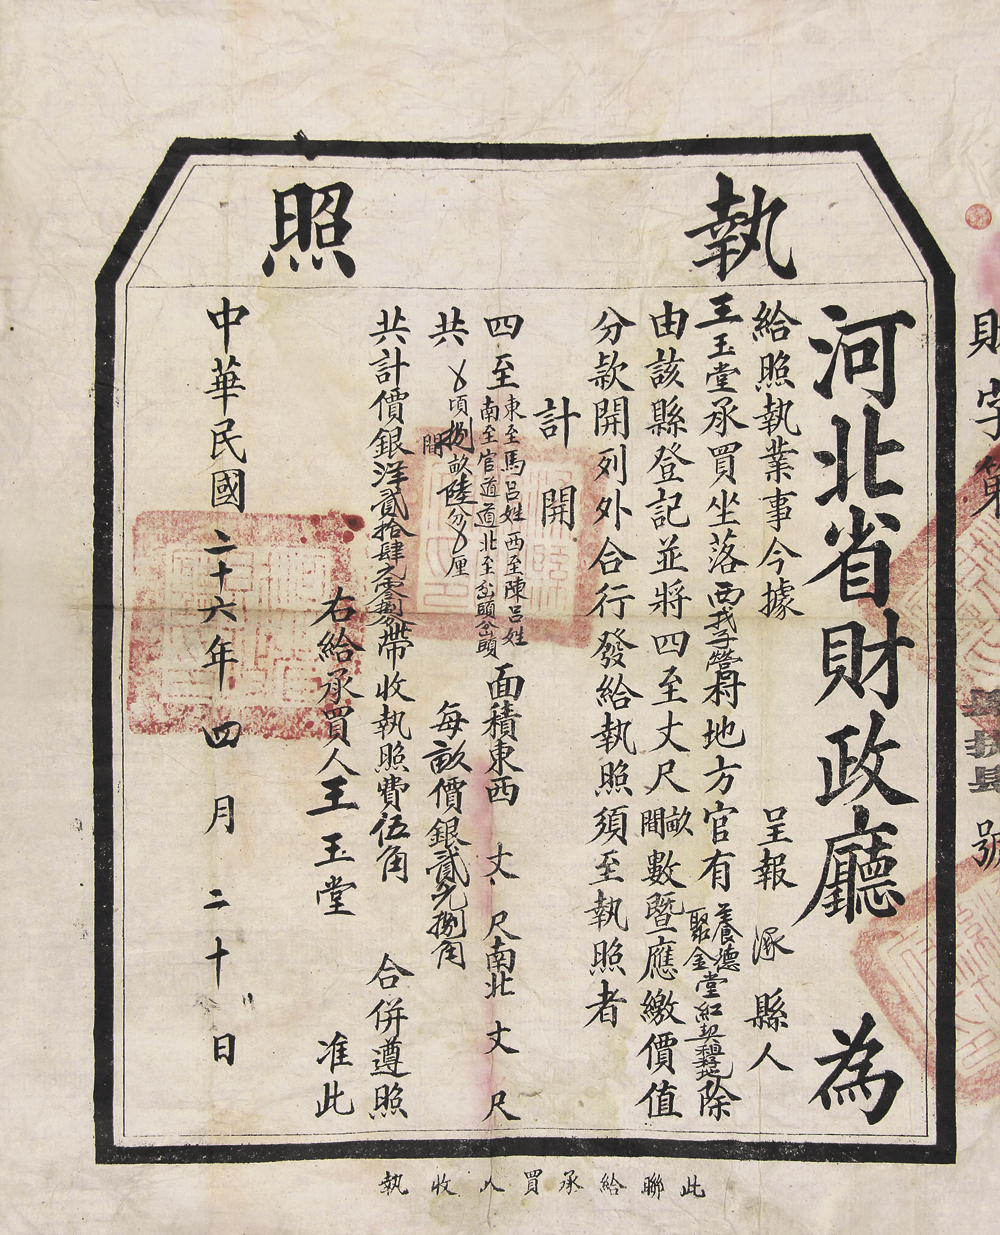 執照
財字第
號
河北省財政廳為
給照執業事今據呈報涿縣人
王玉堂承買坐落西我子營村地方官有養德聚金堂紅契地除
由該縣登記並將四至丈尺畝間數暨應繳價值
分款開列外合行發給執照須至執照者
計開
四至東至馬呂姓西至陳呂姓南至官道道北至岔頭岔頭面積東西丈尺南北丈尺
共〇頃捌畝陸分〇厘間每畝價銀貳元捌角
共計價銀洋貳拾肆元零捌分帶收執照費伍角合併遵照
右給承買人王玉堂准此
中華民國二十六年四月二十日
此聯給承買人收執